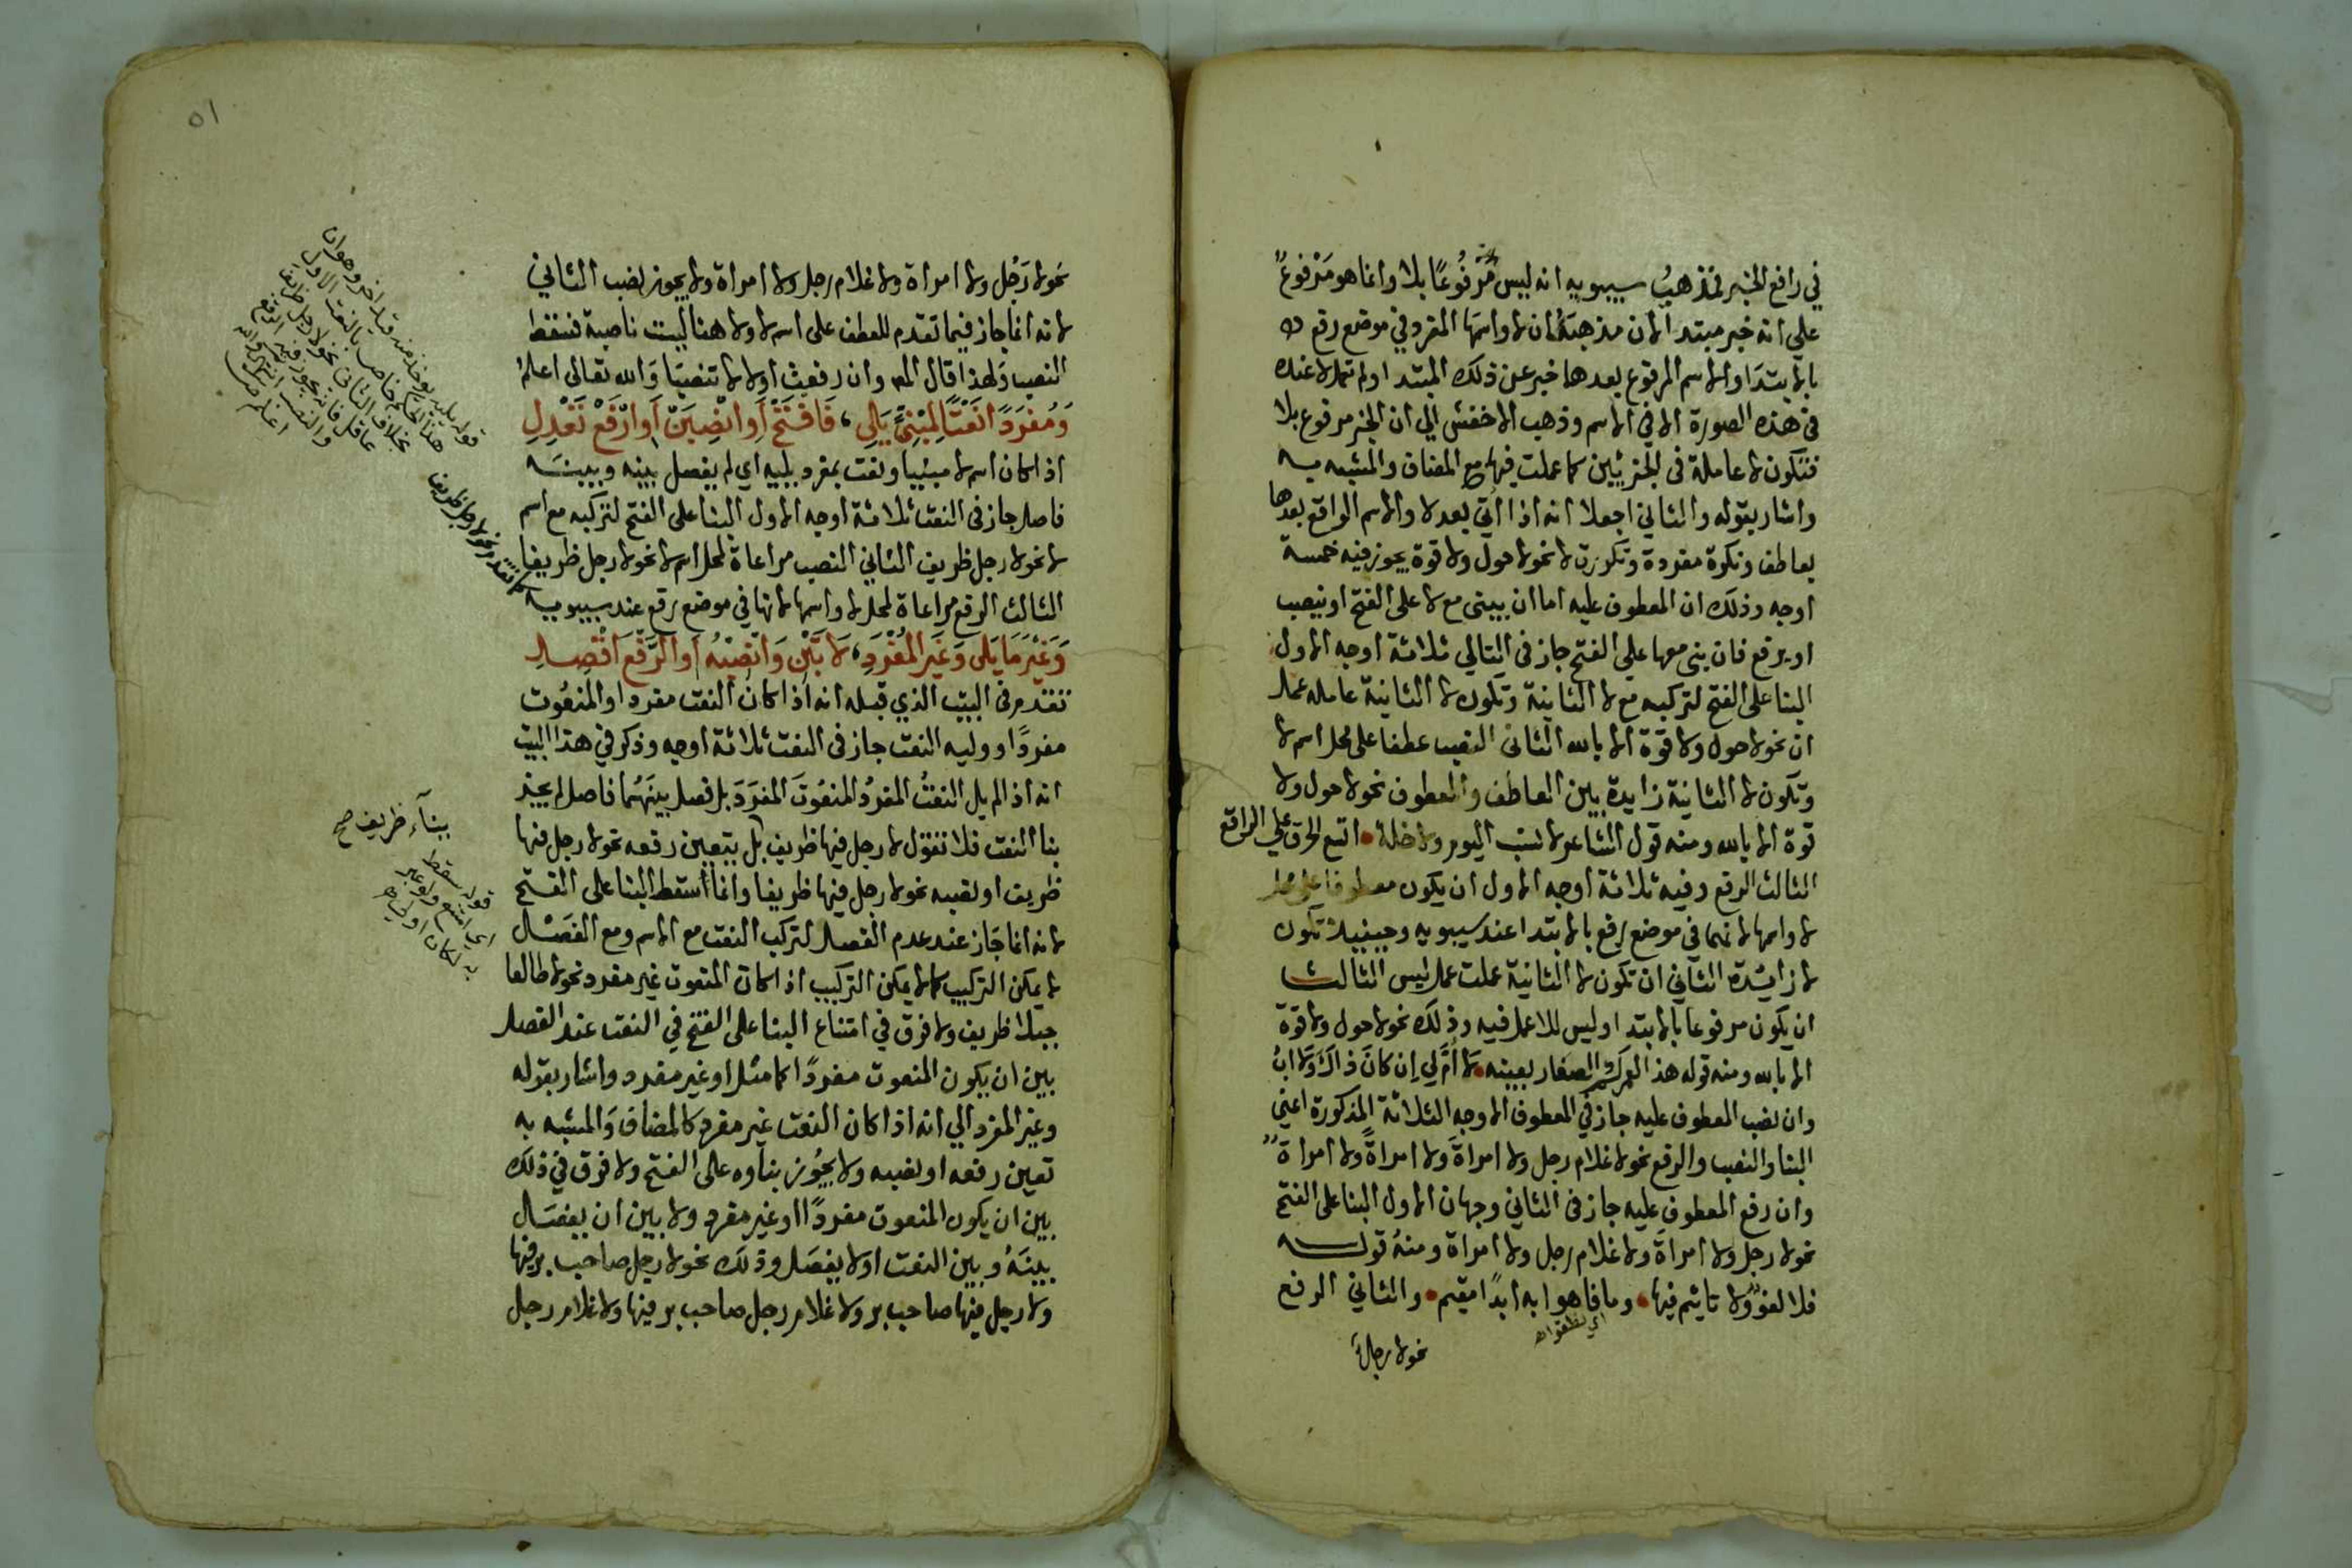 في رافع الخبر فمذهب سيبويه انه ليس مرفوعا بلا وانما هو مرفوع
على انه خبر مبتدا لان مذهبه ان لا واسمها المفرد في موضع رفع
بالابتدا والاسم المرفوع بعدها خبر عن ذلك المبتدا ولم تعمل لا عنده
في هذه الصورة الا في الاسم وذهب الاخفش الى ان الخبر مرفوع بلا
فتكون لا عاملة في الجزئين كما عملت فيهما مع المضاف والمشبه به
واشار بقوله والثاني اجعلا انه اذا اتي بعد لا والاسم الواقع بعدها
بعاطف ونكرة مفردة وتكررت لا نحو لا حول ولا قوة يجوز فيه خمسة
اوجه وذلك ان المعطوف عليه اما ان يبنى مع لا على الفتح او ينصب
او يرفع فان بني معها على الفتح جاز في التالي ثلاثة اوجه الاول
البنا على الفتح لتركبه مع لا الثانية وتكون لا الثانية عامله عمل
ان نحو لا حول ولا قوة الا بالله الثاني النصب عطفا على محل اسم لا
وتكون لا الثانية زايدة بين العاطف والمعطوف نحو لا حول ولا
قوة الا بالله ومنه قول الشاعر لا نسب اليوم ولا خلة • اتسع الخرق على الراقع
الثالث الرفع وفيه ثلاثة اوجه الاول ان يكون معطوفا على محل
لا واسمها لانهما في موضع رفع بالابتدا عند سيبويه وحينيذ تكون
لا زائدة الثاني ان تكون لا الثانية عملت عمل ليس الثالث
ان يكون مرفوعا بالابتدا وليس للا عمل فيه وذلك نحو لا حول ولا قوة
الا بالله ومنه قوله هذا لعمركم الصغار بعينه • لا ام لي ان كان ذاك ولا اب
وان نصب المعطوف عليه جاز في المعطوف الاوجه الثلاثة المذكورة اعني
البنا والنصب والرفع نحو لا غلام رجل ولا امراة ولا امراة ولا امراة
وان رفع المعطوف عليه جاز في الثاني وجهان الاول البنا على الفتح
نحو لا رجل ولا امراة ولا غلام رجل ولا امراة ومنه قوله
فلا لغو ولا تاثيم فيها • وما فاهوا به ابدا مقيم • والثاني الرفع
اي نطقوا اه
نحو لا رجل
٥١
نحو لا رجل ولا امراة ولا غلام رجل ولا امراة ولا يجوز نصب الثاني
لانه انما جاز فيما تقدم للعطف على اسم لا ولا هنا ليست ناصبة فسقط
النصب ولهذا قال المص وان رفعت اولا لا تنصبا والله تعالى اعلم
ومفردا نعتا لمبني يلي، فافتح او انصبن او ارفع تعدل
اذا كان اسم لا مبنيا ونعت بمفرد يليه اي لم يفصل بينه وبينه
فاصل جاز في النعت ثلاثة اوجه الاول البنا على الفتح لتركبه مع اسم
لا نحو لا رجل ظريف الثاني النصب مراعاة لمحل اسم لا نحو لا رجل ظريفا
الثالث الرفع مراعاة لمحل لا واسمها لانها في موضع رفع عند سيبويه
وغير ما يلي وغير المفرد، لا تبن وانصبه او الرفع اقصد
تقدم في البيت الذي قبله انه اذا كان النعت مفردا والمنعوت
مفردا ووليه النعت جاز في النعت ثلاثة اوجه وذكر في هذا البيت
انه اذا لم يل النعت المفرد المنعوت المفرد بل فصل بينهما فاصل لم يجز
بنا النعت فلا تقول لا رجل فيها ظريف بل يتعين رفعه نحو لا رجل فيها
ظريف او نصبه نحو لا رجل فيها ظريفا وانما اسقط البنا على الفتح
لانه انما جاز عند عدم الفصل لتركب النعت مع الاسم ومع الفصل
لا يمكن التركيب كما لا يمكن التركيب اذا كان المنعوت غير مفرد نحو لا طالعا
جبلا ظريف ولا فرق في امتناع البنا على الفتح في النعت عند الفصل
بين ان يكون المنعوت مفردا كما مثل او غير مفرد واشار بقوله
وغير المفرد الي انه اذا كان النعت غير مفرد كالمضاف والمشبه به
تعين رفعه او نصبه ولا يجوز بناوه على الفتح ولا فرق في ذلك
بين ان يكون المنعوت مفردا او غير مفرد ولا بين ان يفصل
بينه وبين النعت او لا يفصل وذلك نحو لا رجل صاحب بر فيها
ولا رجل فيها صاحب بر ولا غلام رجل صاحب بر فيها ولا غلام رجل
ببناء ظريف صح